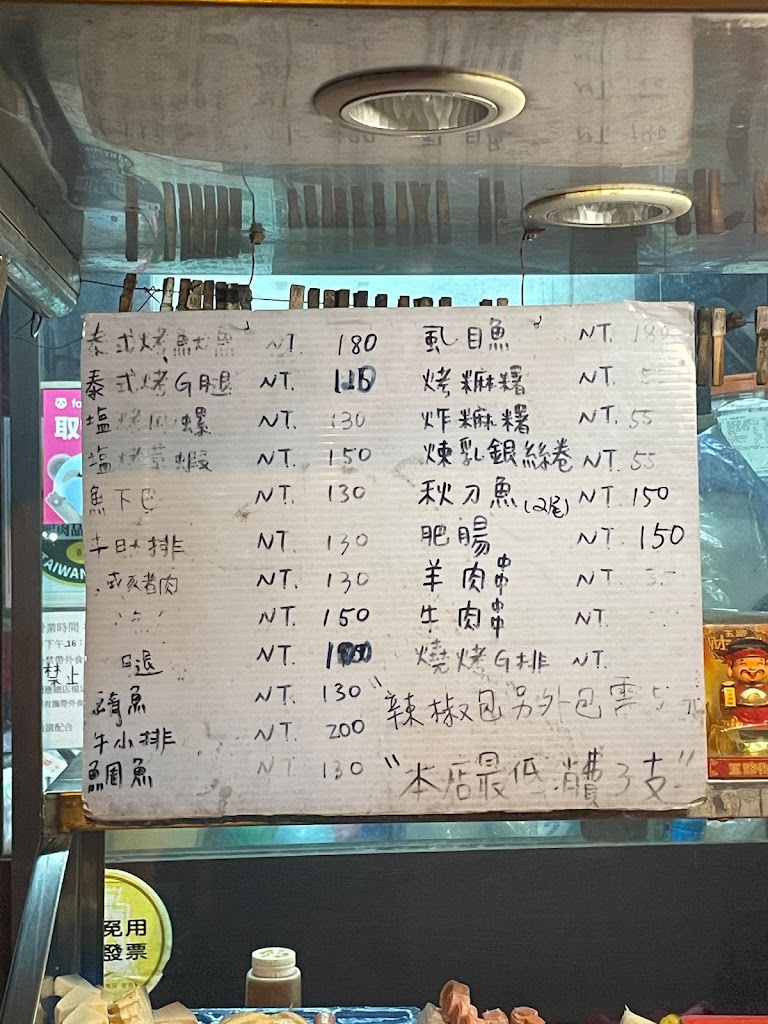 泰式烤魷魚 NT. 180
泰式烤G腿 NT.
塩烤鳳螺 NT. 130
塩烤草蝦 NT. 150
魚下巴 NT. 130
牛 排 NT. 130
豬肉 NT. 130
NT. 150
NT.
鯖魚 NT. 130
牛小排 NT. 200
鯛魚 NT. 130
虱目魚 NT. 180
烤麻糬 NT. 55
炸麻糬 NT. 55
煉乳銀絲卷 NT. 55
秋刀魚(2尾) NT. 150
肥腸 NT. 150
羊肉串 NT.
牛肉串 NT.
燒烤G排 NT.
"辣椒包另外包需5元
"本店最低消費3支"
取
TAIWAN
營業時間
下午
16:
禁止
免用
發票
財